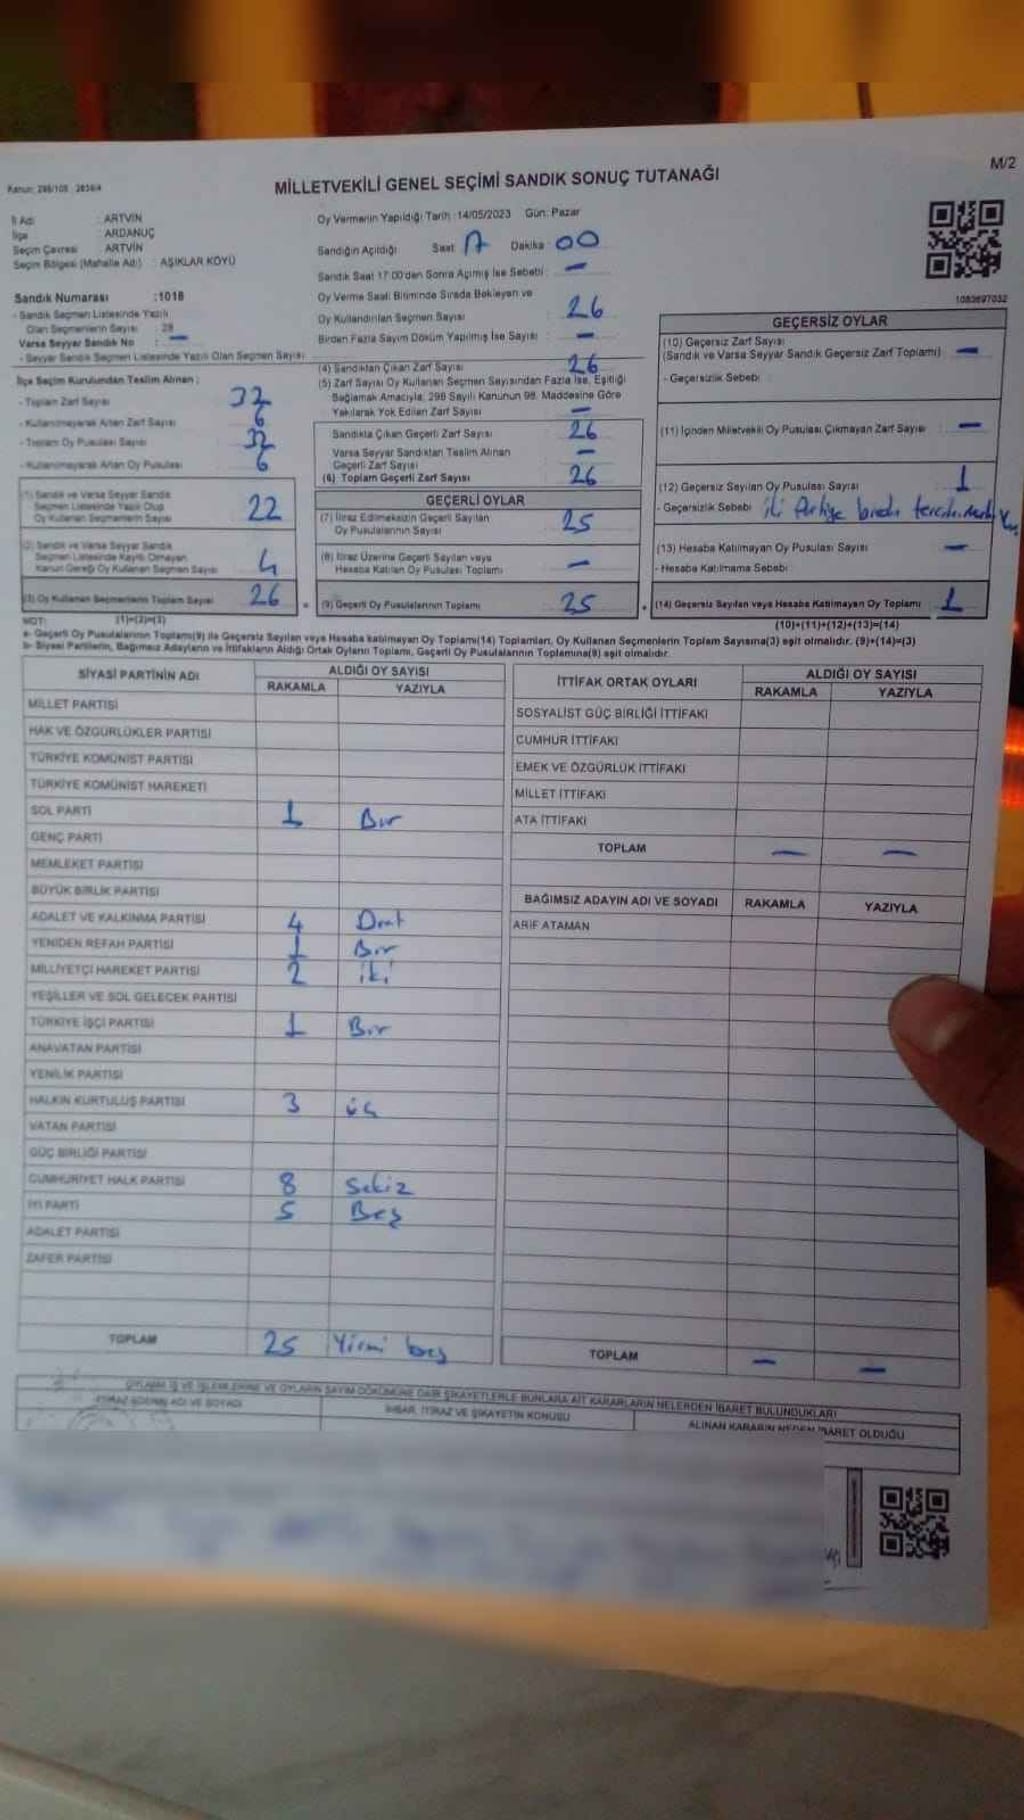 M/2
Kanun: 298/105
MİLLETVEKİLİ GENEL SEÇİMİ SANDIK SONUÇ TUTANAĞI
İl Adı : ARTVİN
İlçe : ARDANUÇ
Seçim Çevresi : ARTVİN
Seçim Bölgesi (Mahalle Adı) : AŞIKLAR KÖYÜ
Sandık Numarası :1018
- Sandık Seçmen Listesinde Yazılı
Olan Seçmenlerin Sayısı : 28
Varsa Seyyar Sandık No : —
- Seyyar Sandık Seçmen Listesinde Yazılı Olan Seçmen Sayısı
Oy Vermenin Yapıldığı Tarih :14/05/2023 Gün: Pazar
Sandığın Açıldığı Saat 17 Dakika : 00
Sandık Saat 17:00'den Sonra Açılmış İse Sebebi : —
Oy Verme Saati Bitiminde Sırada Bekleyen ve
Oy Kullandırılan Seçmen Sayısı : 26
Birden Fazla Sayım Döküm Yapılmış İse Sayısı : —
1083697032
İlçe Seçim Kurulundan Teslim Alınan :
- Toplam Zarf Sayısı 32
- Kullanılmayarak Artan Zarf Sayısı 6
- Toplam Oy Pusulası Sayısı 32
- Kullanılmayarak Artan Oy Pusulası 6
(1) Sandık ve Varsa Seyyar Sandık
Seçmen Listesinde Yazılı Olup
Oy Kullanan Seçmenlerin Sayısı 22
(2) Sandık ve Varsa Seyyar Sandık
Seçmen Listesinde Kayıtlı Olmayan
Kanun Gereği Oy Kullanan Seçmen Sayısı 4
(3) Oy Kullanan Seçmenlerin Toplam Sayısı 26
(1)+(2)=(3)
(4) Sandıktan Çıkan Zarf Sayısı 26
(5) Zarf Sayısı Oy Kullanan Seçmen Sayısından Fazla İse, Eşitliği
Sağlamak Amacıyla, 298 Sayılı Kanunun 98. Maddesine Göre
Yakılarak Yok Edilen Zarf Sayısı —
Sandıkta Çıkan Geçerli Zarf Sayısı 26
Varsa Seyyar Sandıktan Teslim Alınan
Geçerli Zarf Sayısı —
(6) Toplam Geçerli Zarf Sayısı 26
GEÇERLİ OYLAR
(7) İtiraz Edilmeksizin Geçerli Sayılan
Oy Pusulalarının Sayısı 25
(8) İtiraz Üzerine Geçerli Sayılan veya
Hesaba Katılan Oy Pusulası Toplamı —
(9) Geçerli Oy Pusulalarının Toplamı 25
GEÇERSİZ OYLAR
(10) Geçersiz Zarf Sayısı
(Sandık ve Varsa Seyyar Sandık Geçersiz Zarf Toplamı) —
- Geçersizlik Sebebi :
(11) İçinden Milletvekili Oy Pusulası Çıkmayan Zarf Sayısı : —
(12) Geçersiz Sayılan Oy Pusulası Sayısı 1
- Geçersizlik Sebebi : iki Partiye
(13) Hesaba Katılmayan Oy Pusulası Sayısı —
- Hesaba Katılmama Sebebi
(14) Geçersiz Sayılan veya Hesaba Katılmayan Oy Toplamı 1
(10)+(11)+(12)+(13)=(14)
NOT:
a- Geçerli Oy Pusulalarının Toplamı(9) ile Geçersiz Sayılan veya Hesaba katılmayan Oy Toplamı(14) Toplamları, Oy Kullanan Seçmenlerin Toplam Sayısına(3) eşit olmalıdır. (9)+(14)=(3)
b- Siyasi Partilerin, Bağımsız Adayların ve İttifakların Aldığı Ortak Oyların Toplamı, Geçerli Oy Pusulalarının Toplamına(9) eşit olmalıdır.
SİYASİ PARTİNİN ADI ALDIĞI OY SAYISI
RAKAMLA YAZIYLA
MİLLET PARTİSİ
HAK VE ÖZGÜRLÜKLER PARTİSİ
TÜRKİYE KOMÜNİST PARTİSİ
TÜRKİYE KOMÜNİST HAREKETİ
SOL PARTİ 1 Bir
GENÇ PARTİ
MEMLEKET PARTİSİ
BÜYÜK BİRLİK PARTİSİ
ADALET VE KALKINMA PARTİSİ 4 Dört
YENİDEN REFAH PARTİSİ 1 Bir
MİLLİYETÇİ HAREKET PARTİSİ 2 iki
YEŞİLLER VE SOL GELECEK PARTİSİ
TÜRKİYE İŞÇİ PARTİSİ 1 Bir
ANAVATAN PARTİSİ
YENİLİK PARTİSİ
HALKIN KURTULUŞ PARTİSİ 3 üç
VATAN PARTİSİ
GÜÇ BİRLİĞİ PARTİSİ
CUMHURİYET HALK PARTİSİ 8 Sekiz
İYİ PARTİ 5 Beş
ADALET PARTİSİ
ZAFER PARTİSİ
TOPLAM 25 Yirmi beş
İTTİFAK ORTAK OYLARI ALDIĞI OY SAYISI
RAKAMLA YAZIYLA
SOSYALİST GÜÇ BİRLİĞİ İTTİFAKI
CUMHUR İTTİFAKI
EMEK VE ÖZGÜRLÜK İTTİFAKI
MİLLET İTTİFAKI
ATA İTTİFAKI
TOPLAM — —
BAĞIMSIZ ADAYIN ADI VE SOYADI RAKAMLA YAZIYLA
ARİF ATAMAN
TOPLAM — —
OYLAMA İŞ VE İŞLEMLERİNE VE OYLARIN SAYIM DÖKÜMÜNE DAİR ŞİKAYETLERLE BUNLARA AİT KARARLARIN NELERDEN İBARET BULUNDUKLARI
İTİRAZ EDENİN ADI VE SOYADI
İHBAR, İTİRAZ VE ŞİKAYETİN KONUSU
ALINAN KARARIN NEDEN İBARET OLDUĞU